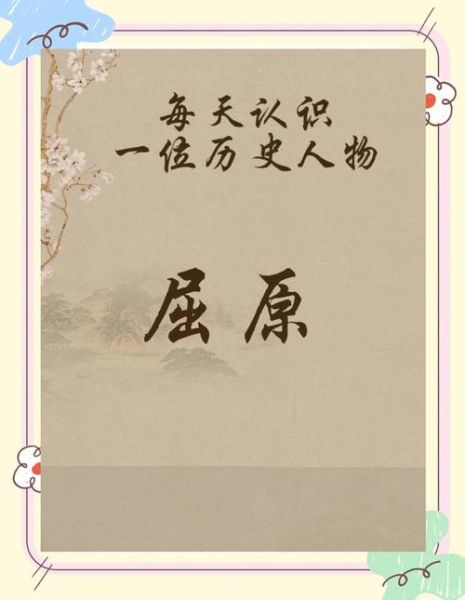 每天认识
一位历史人物
屈原